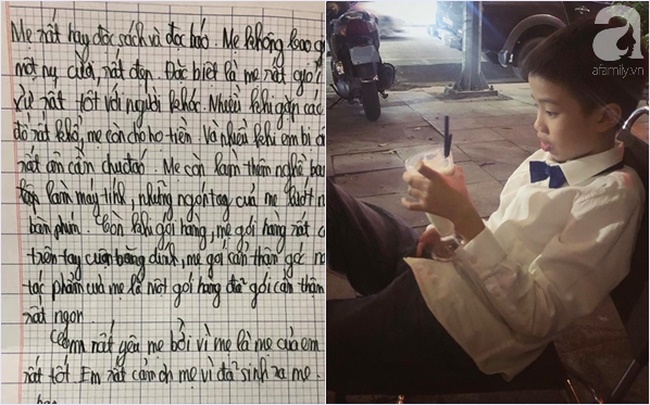 Mẹ rất hay đọc sách và đọc báo. Mẹ không bao g
một nụ cười, rất đẹp. Đặc biệt là mẹ rất giỏi
xử rất tốt với người khác. Nhiều khi gặp các
đó rất khổ, mẹ còn cho họ tiền. Và nhiều khi em bị ố
rất ân cần chu đáo. Mẹ còn làm thêm nghề ba
làm máy tính, những ngón tay của mẹ lướt n
bàn phím. Còn khi gói hàng, mẹ gói hàng rất c
trên tay cuộn băng dính, mẹ gói cẩn thận góc n
tác phẩm của mẹ là một gói hàng đã gói cẩn thận
rất ngon.
Em rất yêu mẹ bởi vì mẹ là mẹ của em
rất tốt. Em rất cảm ơn mẹ vì đã sinh ra mẹ.
a
afamily.vn